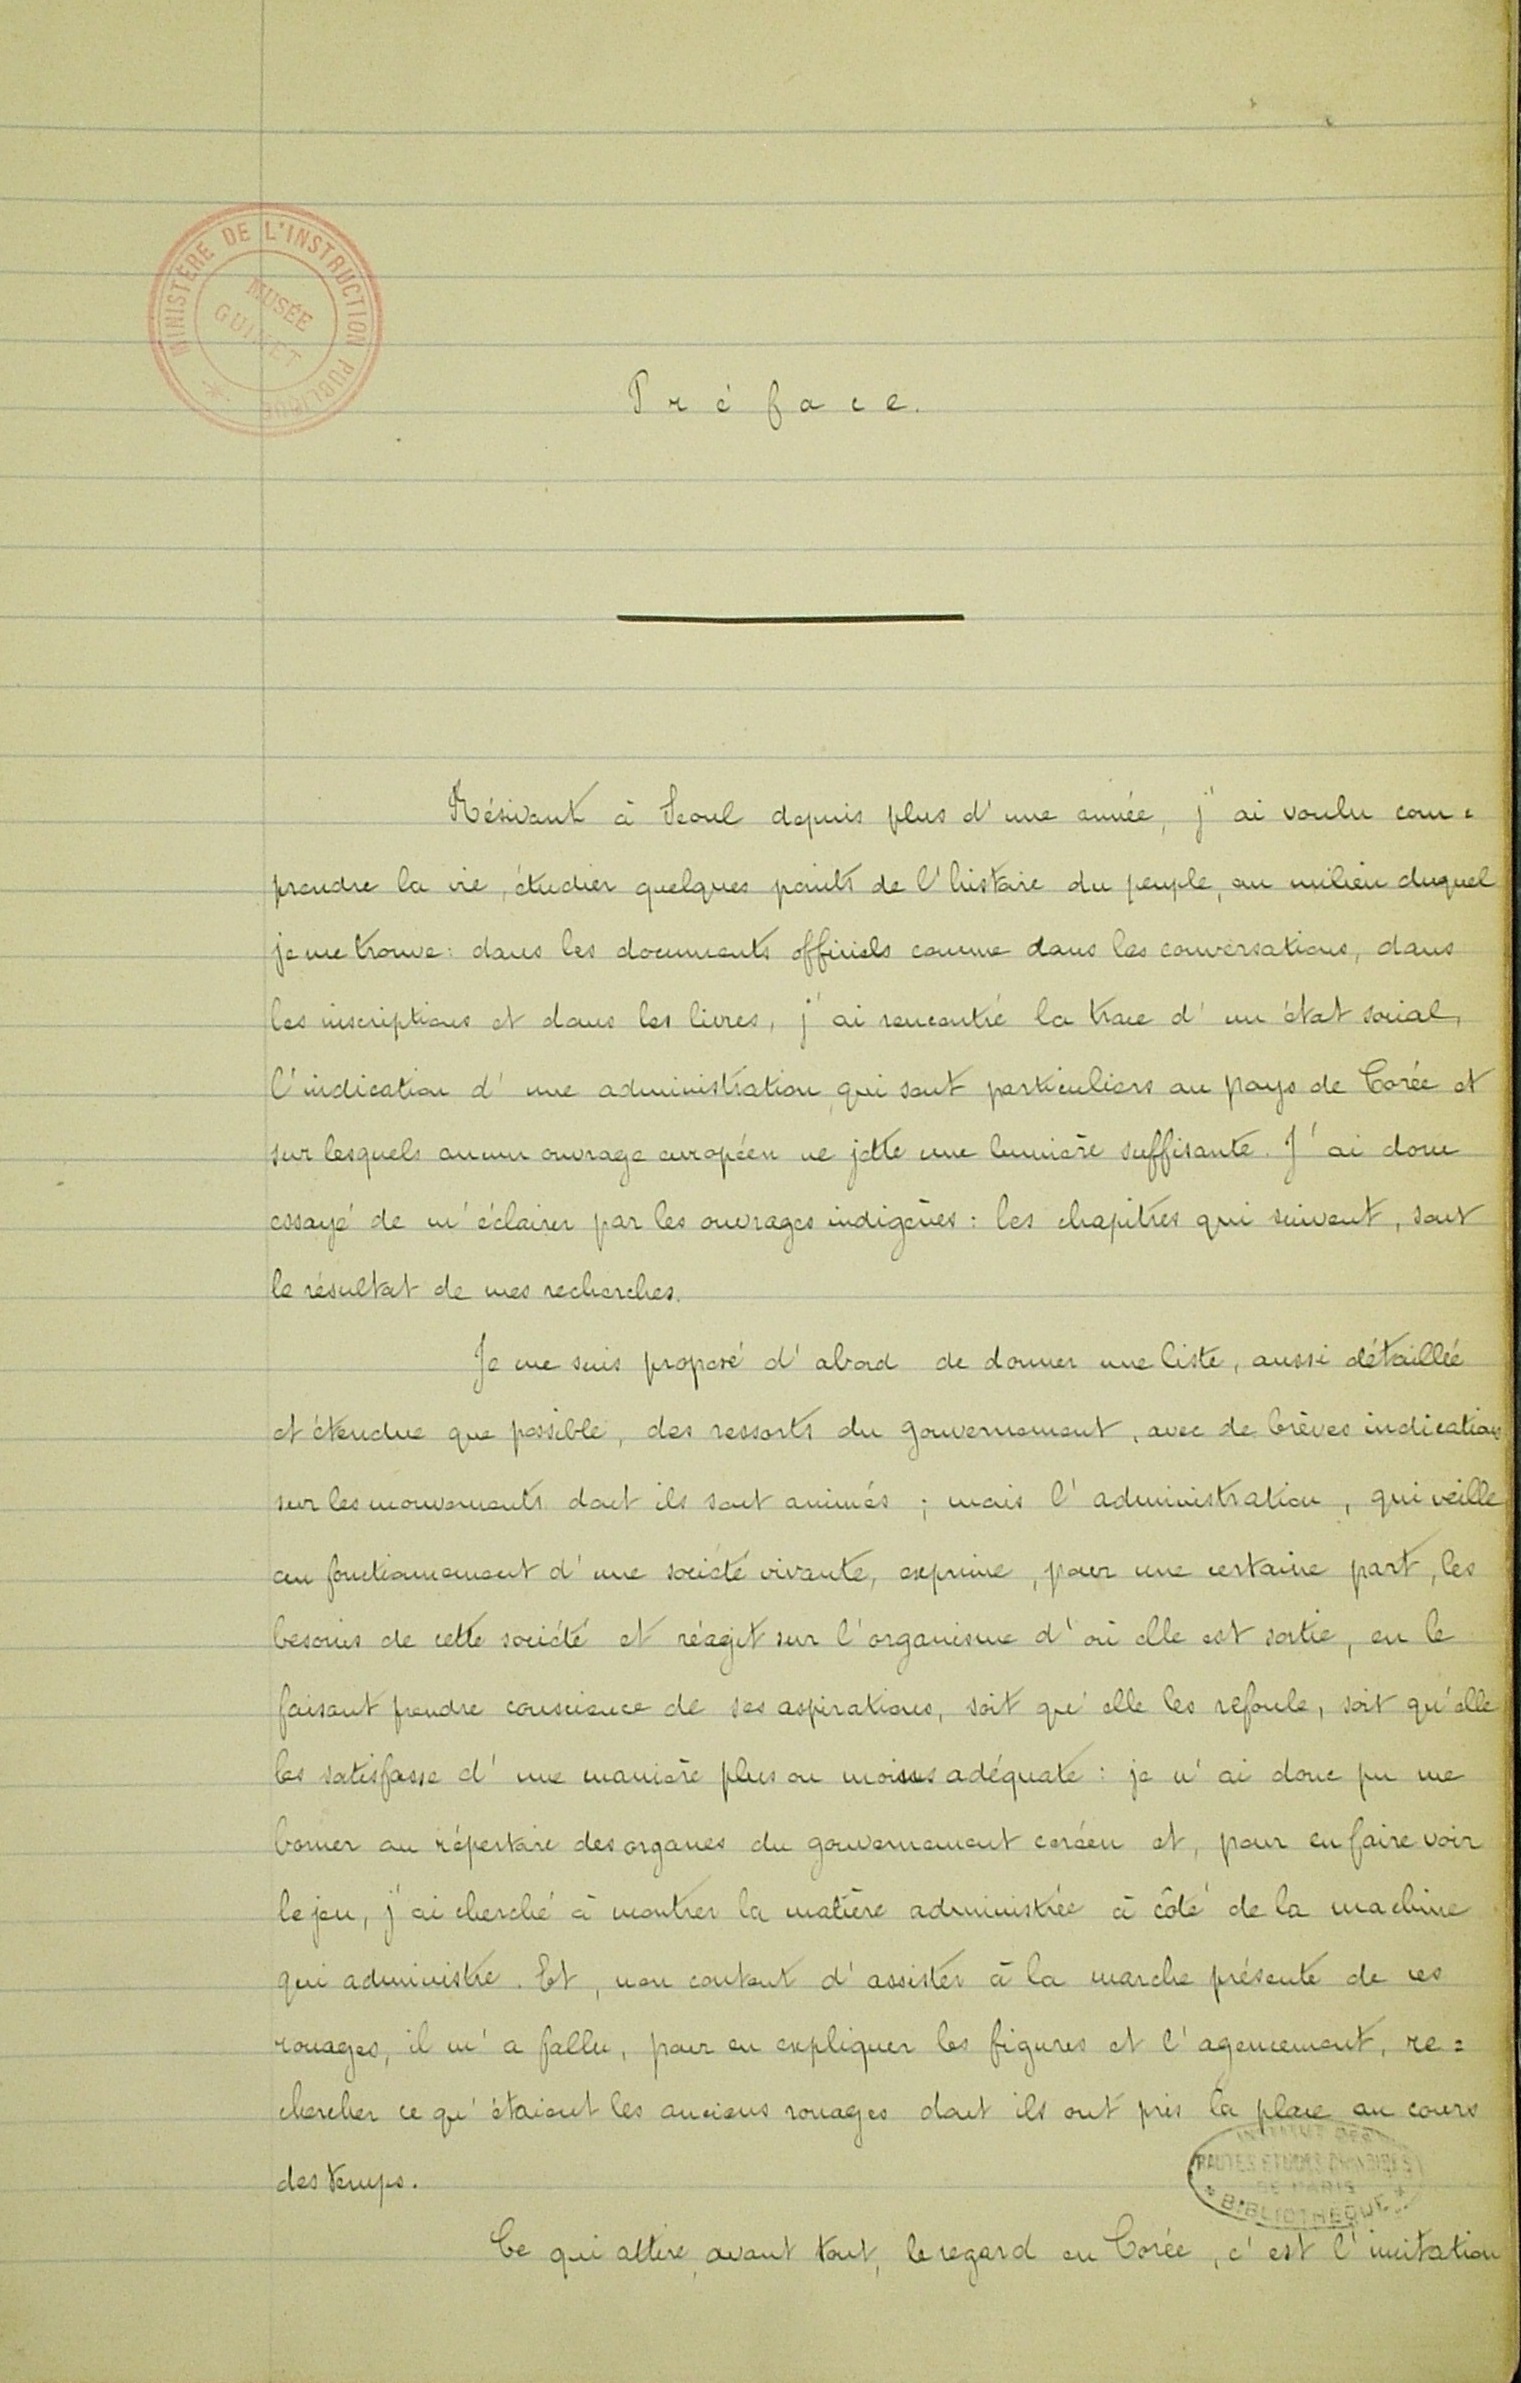 MINISTÈRE DE L'INSTRUCTION PUBLIQUE
MUSÉE
GUIMET
Préface.
Résidant à Seoul depuis plus d'une année, j'ai voulu com=
prendre la vie, étudier quelques points de l'histoire du peuple, au milieu duquel
je me trouve: dans les documents officiels comme dans les conversations, dans
les inscriptions et dans les livres, j'ai rencontré la trace d'un état social,
l'indication d'une administration, qui sont particuliers au pays de Corée et
sur lesquels aucun ouvrage européen ne jette une lumière suffisante. J'ai donc
essayé de m'éclairer par les ouvrages indigènes: les chapitres qui suivent, sont
le résultat de mes recherches.
Je me suis proposé d'abord de donner une liste, aussi détaillée
et étendue que possible, des ressorts du gouvernement, avec de brèves indications
sur les mouvements dont ils sont animés; mais l'administration, qui veille
au fonctionnement d'une société vivante, exprime, pour une certaine part, les
besoins de cette société et réagit sur l'organisme d'où elle est sortie, en le
faisant prendre conscience de ses aspirations, soit qu'elle les refoule, soit qu'elle
les satisfasse d'une manière plus ou moins adéquate: je n'ai donc pu me
borner au répertoire des organes du gouvernement coréen et, pour en faire voir
le jeu, j'ai cherché à montrer la matière administrée à côté de la machine
qui administre. Et, non content d'assister à la marche présente de ces
rouages, il m'a fallu, pour en expliquer les figures et l'agencement, re=
chercher ce qu'étaient les anciens rouages dont ils ont pris la place au cours
des temps.
INSTITUT DES
HAUTES ETUDES CHINOISES
DE PARIS
* BIBLIOTHEQUE *
Ce qui attire, avant tout, le regard en Corée, c'est l'imitation